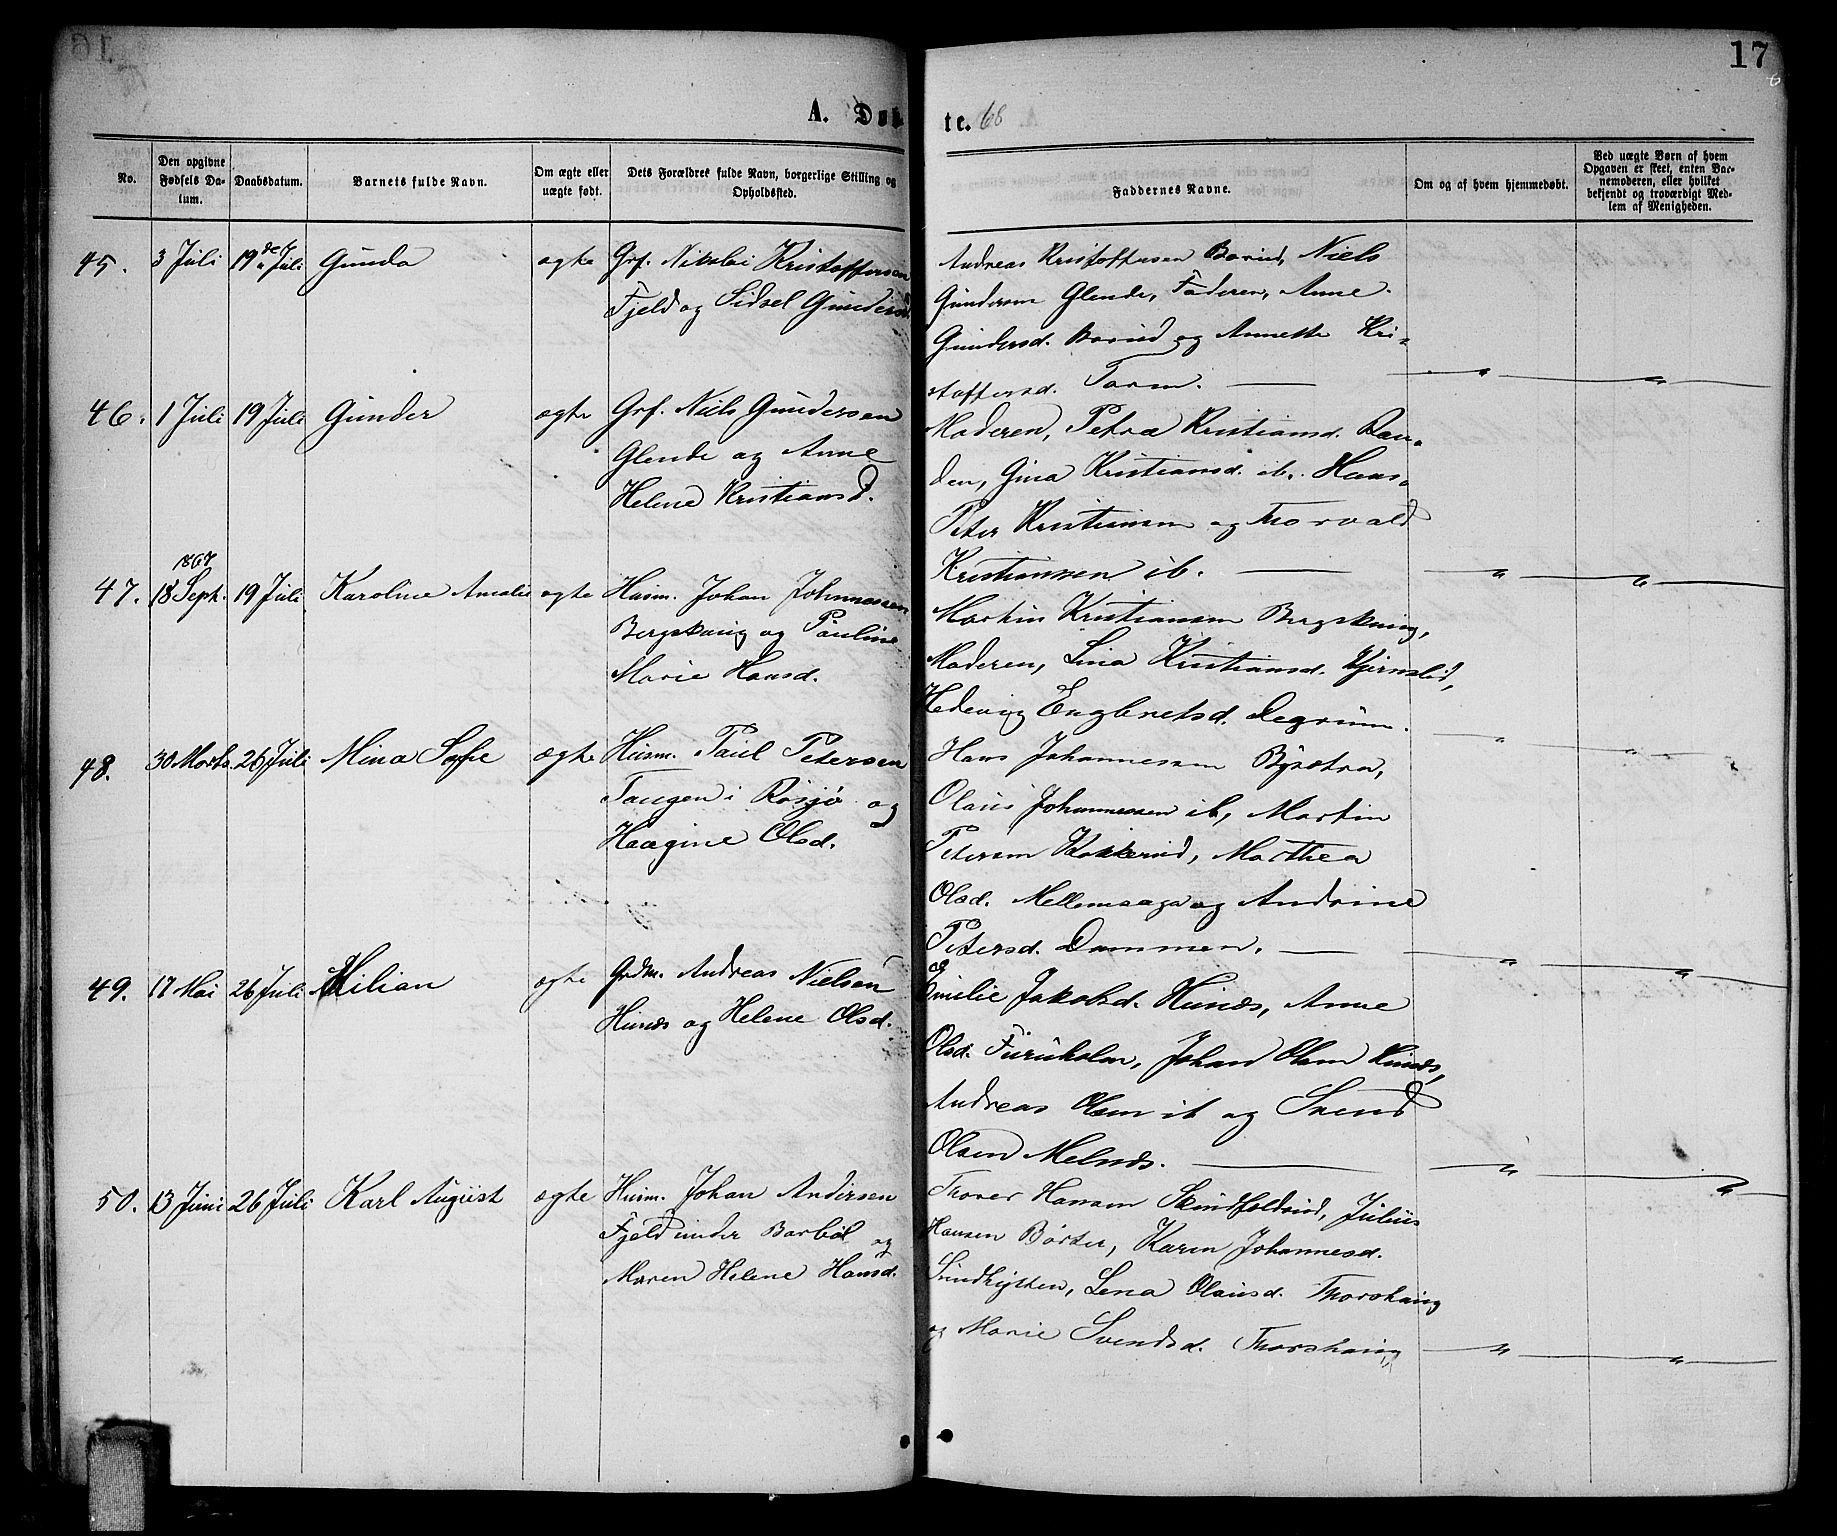 17
A. Døb
te. 68
No.
Den opgivne Fødsels Datum.
Daabsdatum.
Barnets fulde Navn.
Om ægte eller uægte født.
Dets Forældres fulde Navn, borgerlige Stilling og Opholdssted.
Faddernes Navne.
Om og af hvem hjemmedøbt.
Ved uægte Børn af hvem Opgaven er skeet, enten Barnemoderen, eller hvilket bekjendt og troværdigt Medlem af Menigheden.
45. 3 Juli 19de Juli Gunda ægte Grf. Nikolai Kristoffersen
Fjeld og Sidsel Gundersd
Andreas Kristoffersen Borud, Niels
Gundersen Glende, Faderen, Anne
Gundersd. Borud og Annette Kri-
stoffersd. Torm. — " — "
46. 1 Juli 19 Juli Gunder ægte Grf. Niels Gundersen
Glende og Anne
Helene Kristiansd.
Moderen, Petra Kristiansd. Ran-
den, Gina Kristiansd. ib. Hans
Peter Kristiansen og Thorvald
Kristiansen ib. — " — "
47. 18 Sept. 1867 19 Juli Karoline Amalie ægte Husm. Johan Johannessen
Bergskaug og Pauline
Marie Hansd.
Martin Kristiansen Bergskaug,
Moderen, Lina Kristiansd. Kjernslid,
Hedevig Engbretsd. Degrum. " — "
48. 30 Marts 26 Juli Mina Sofie ægte Husm. Paul Petersen
Tangen i Røsjø og
Haagine Olsd.
Hans Johannessen Bysætra,
Olaus Johannessen ib, Martin
Petersen Kokkerud, Marthea
Olsd. Mellemsaga og Andrine
Petersd. Dammen. — " — "
49. 17 Mai 26 Juli Milian ægte Grdm. Andreas Nielsen
Hunæs og Helene Olsd.
Emelie Jakobsd. Hunæs, Anne
Olsd. Furuholm, Johan Olsen Hunæs,
Andreas Olsen ib og Svend
Olsen Melnæs. — " — "
50. 13 Juni 26 Juli Karl August ægte Husm. Johan Andersen
Fjeld under Barbøl og
Maren Helene Hansd.
Thorer Hansen Skindfeldrud, Julius
Hansen Børter, Karen Johannesd.
Sundhytten, Lena Olausd. Thorshaug
og Marie Svendsd. Thorshaug — " — "